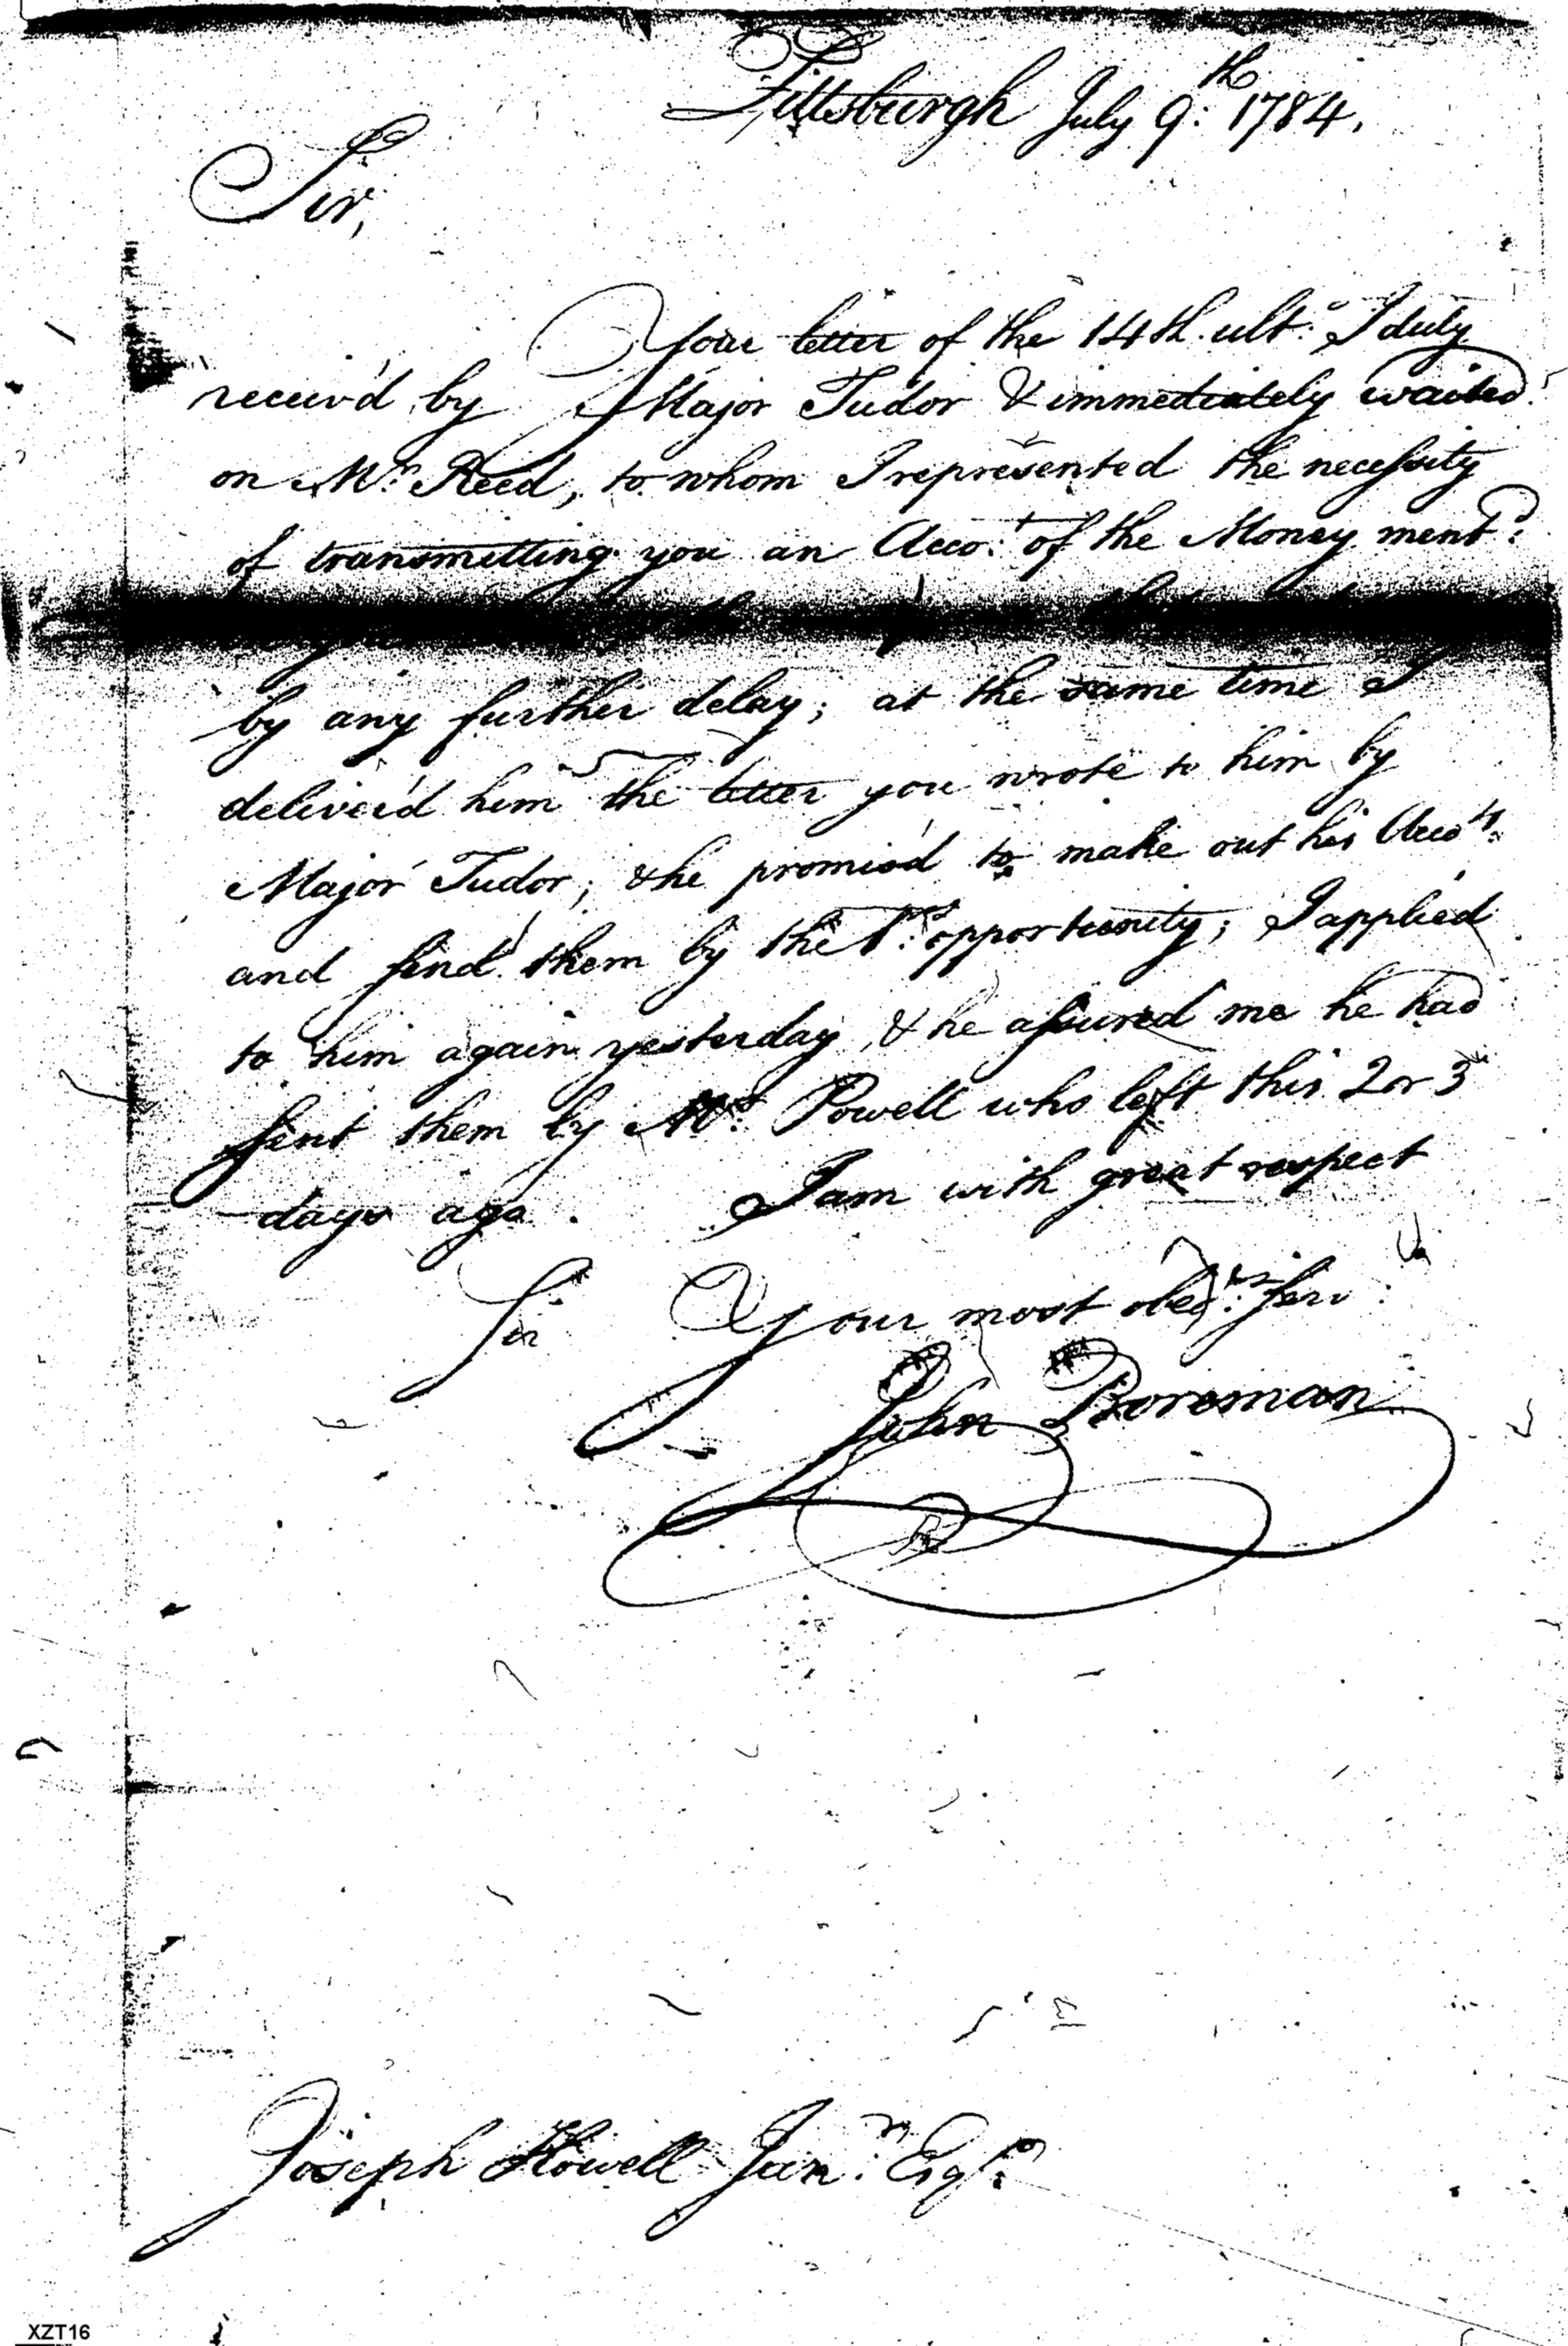 Pittsburgh July 9th: 1784.
Sir,
Your letter of the 14th. ulto: I duly
receiv'd by Major Tudor & immediately waited
on Mr. Reed, to whom I represented the necessity
of transmitting you an Accot: of the Money mentd:
by any further delay; at the same time I
deliver'd him the letter you wrote to him by
Major Tudor; & he promis'd to make out his Accots:
and send them by the 1st: opportunity; I applied
to him again yesterday, & he assured me he had
sent them by Mr: Powell who left this 2 or 3
days ago. I am with great respect
Sir Your most obedt: Serv:
John Boreman
Joseph Howell Junr: Esqr:
XZT16